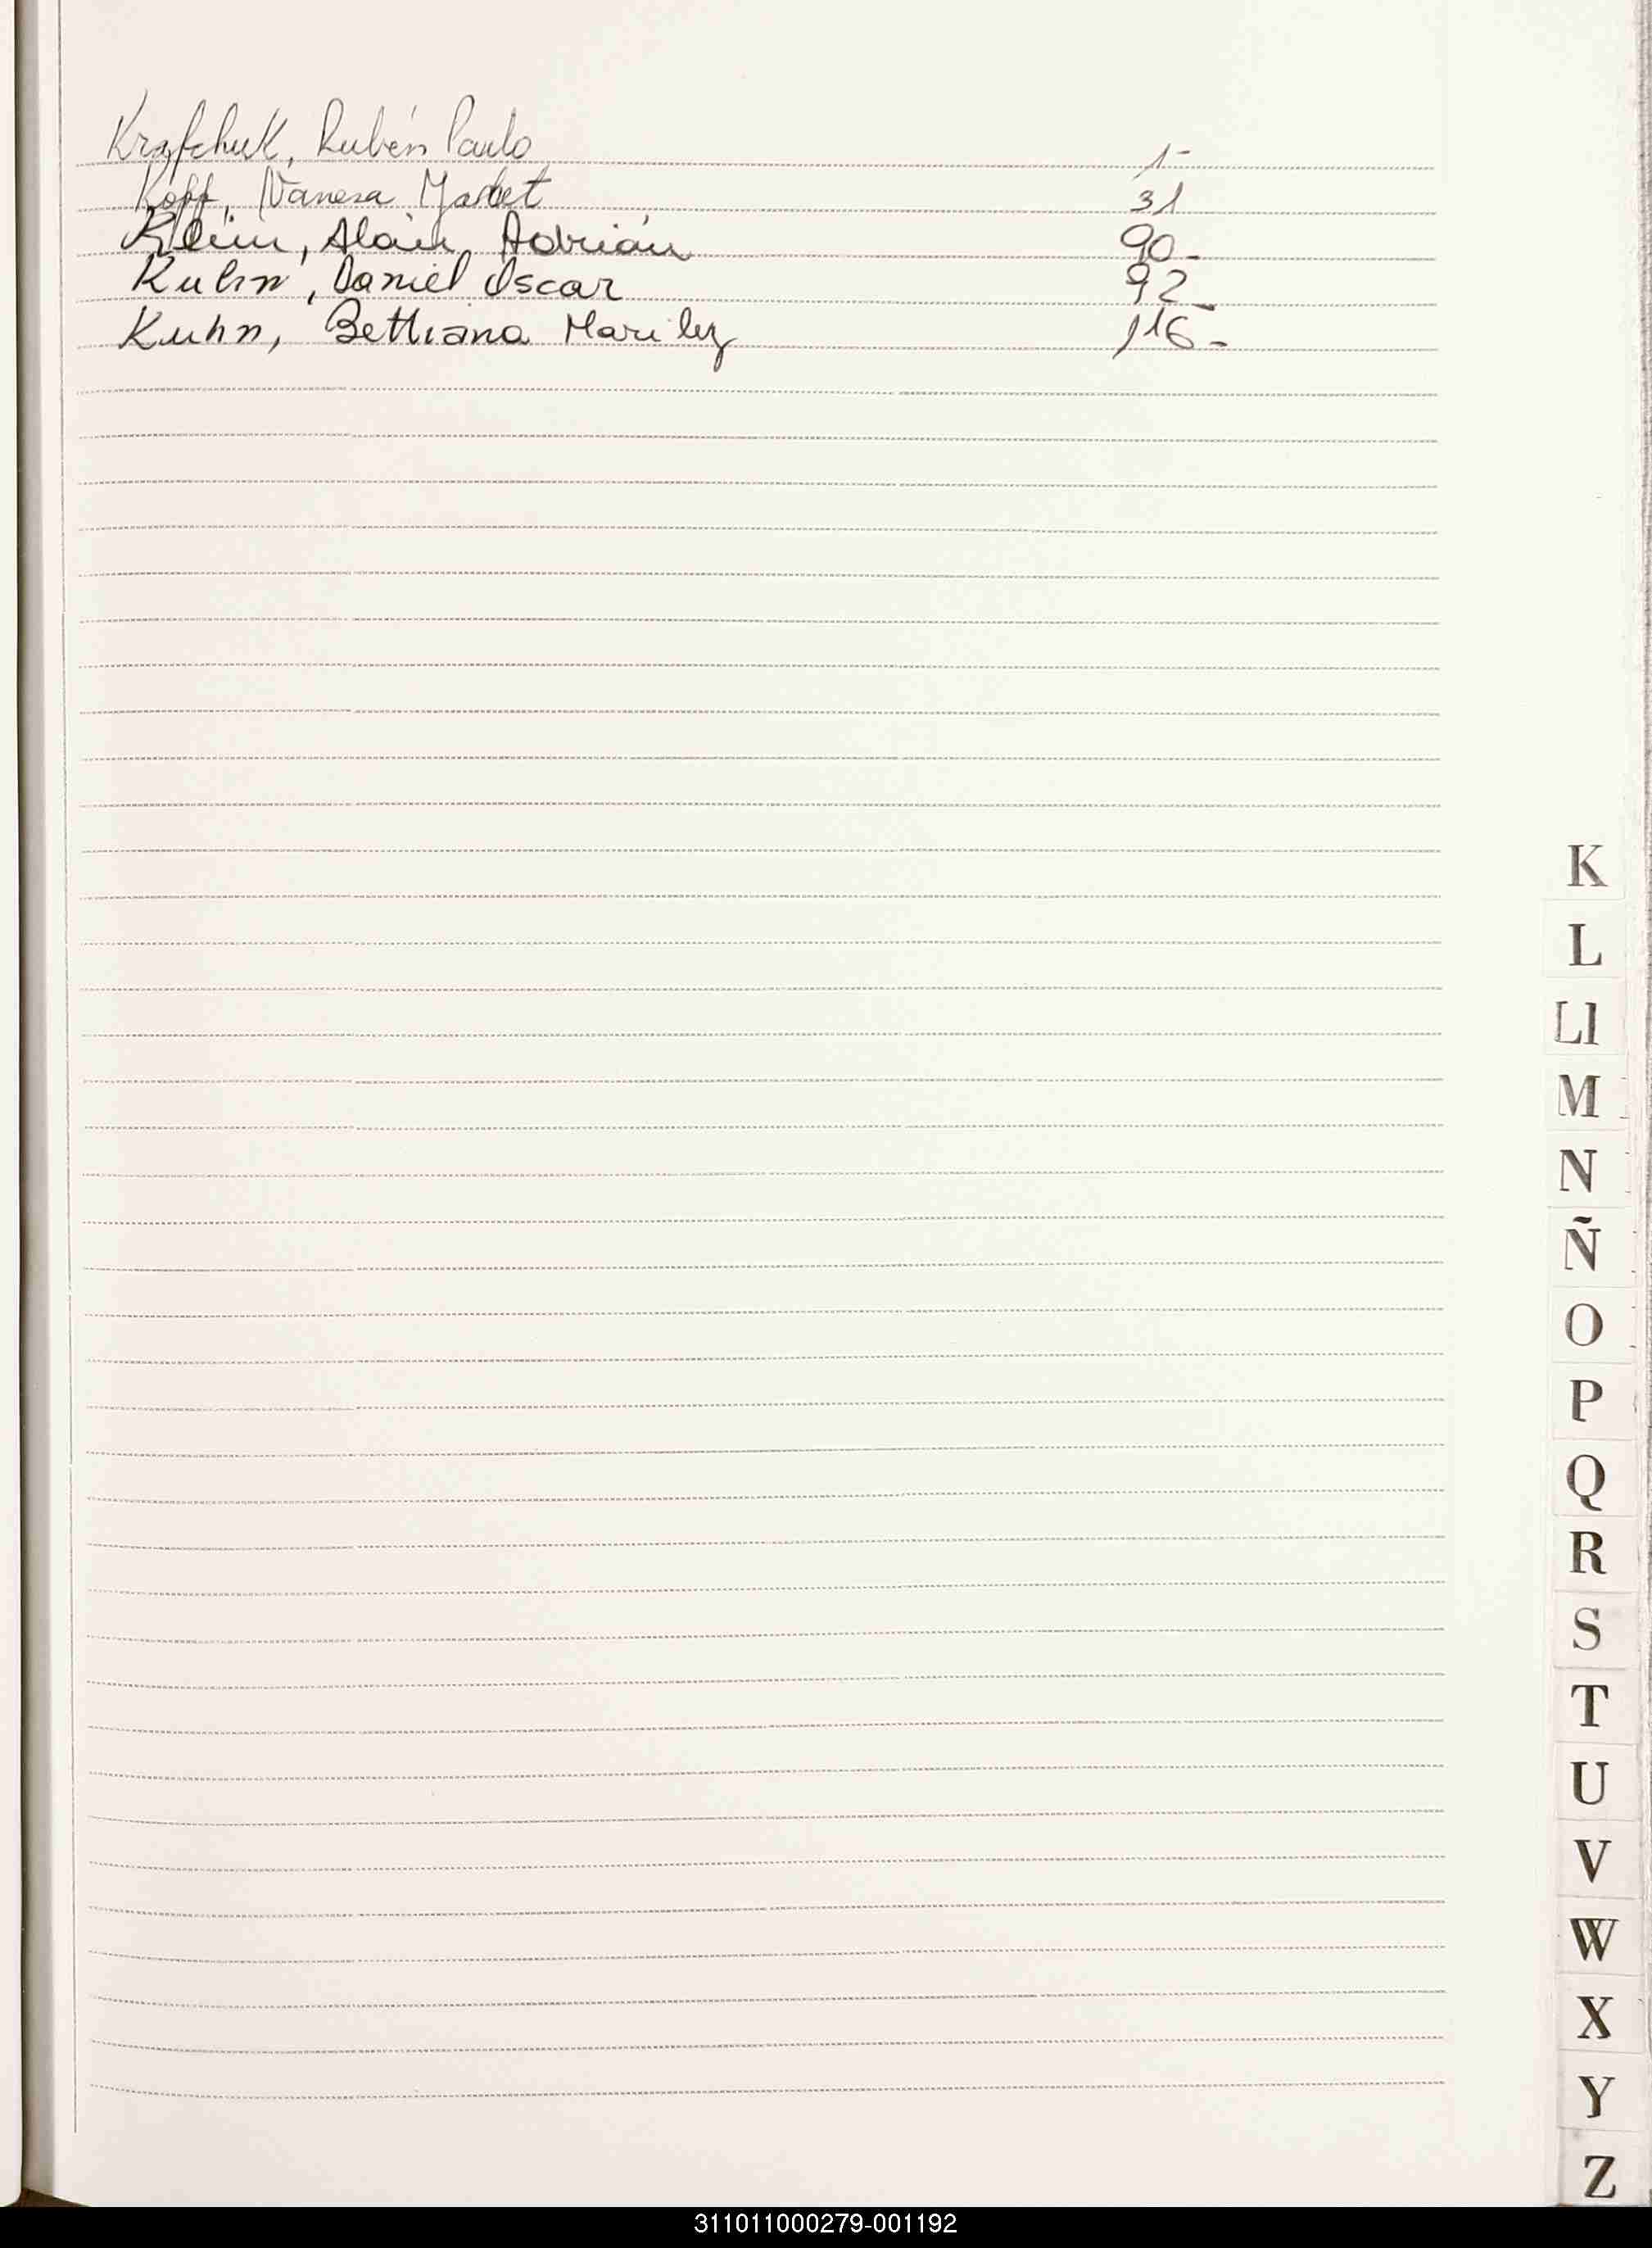 Krafchuk, Rubén Paulo 1-
Kopf, Vanesa Mabet 31
Klein, Alain Adrián 90-
Kuhn, Daniel Oscar 92-
Kuhn, Bettiana Mariley 116-
K
L
Ll
M
N
Ñ
O
P
Q
R
S
T
U
V
W
X
Y
Z
311011000279-001192